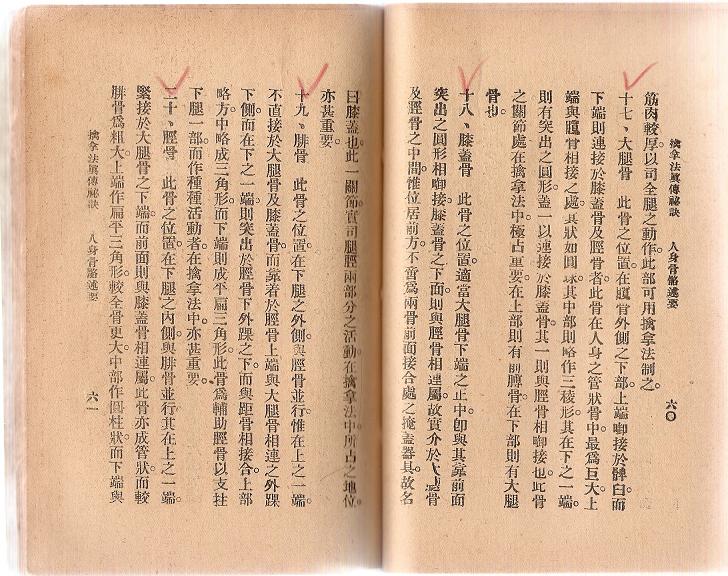 擒拿法眞傳祕訣　人身骨骼述要　六〇
筋肉較厚。以司全腿之動作。此部可用擒拿法制之。
十七、大腿骨　此骨之位置。在臗骨外側之下部。上端啣接於髀臼。而
下端則連接於膝蓋骨及脛骨者。此骨在人身之管狀骨中。最爲巨大。上
端與臗骨相接之處。其狀如圓球。其中部則略作三稜形。其在下之一端。
則有突出之圓形。蓋一以連接於膝蓋骨。其一則與脛骨相啣接也。此骨
之關節處。在擒拿法中。極占重要。在上部則有前髀骨。在下部則有大腿
骨也。
十八、膝蓋骨　此骨之位置。適當大腿骨下端之正中。卽與其靠前面
突出之圓形相啣接。膝蓋骨之下面。則與脛骨相連屬。故實介於大腿骨
及脛骨之中間。惟位居前方。不啻爲兩骨前面接合處之掩蓋器具。故名
曰膝蓋也。此一關節。實司腿脛兩部分之活動。在擒拿法中所占之地位。
亦甚重要。
十九、腓骨　此骨之位置。在下腿之外側。與脛骨並行。惟在上之一端。
不直接於大腿骨及膝蓋骨。而靠着於脛骨上端與大腿骨相連之外踝
下側。而在下之一端。則突出於脛骨下外踝之下。而與距骨相接合。上部
略方。中略成三角形。而下端則成平扁三角形。此骨爲輔助脛骨以支拄
下腿一部。而作種種活動者。在擒拿法中。亦甚重要。
二十、脛骨　此骨之位置。在下腿之內側。與腓骨並行。其在上之一端。
緊接於大腿骨之下端。而前面則與膝蓋骨相連屬。此骨亦成管狀。而較
腓骨爲粗大。上端作扁平三角形。較全骨更大。中部作圓柱狀。而下端與
擒拿法眞傳祕訣　人身骨骼述要　六一